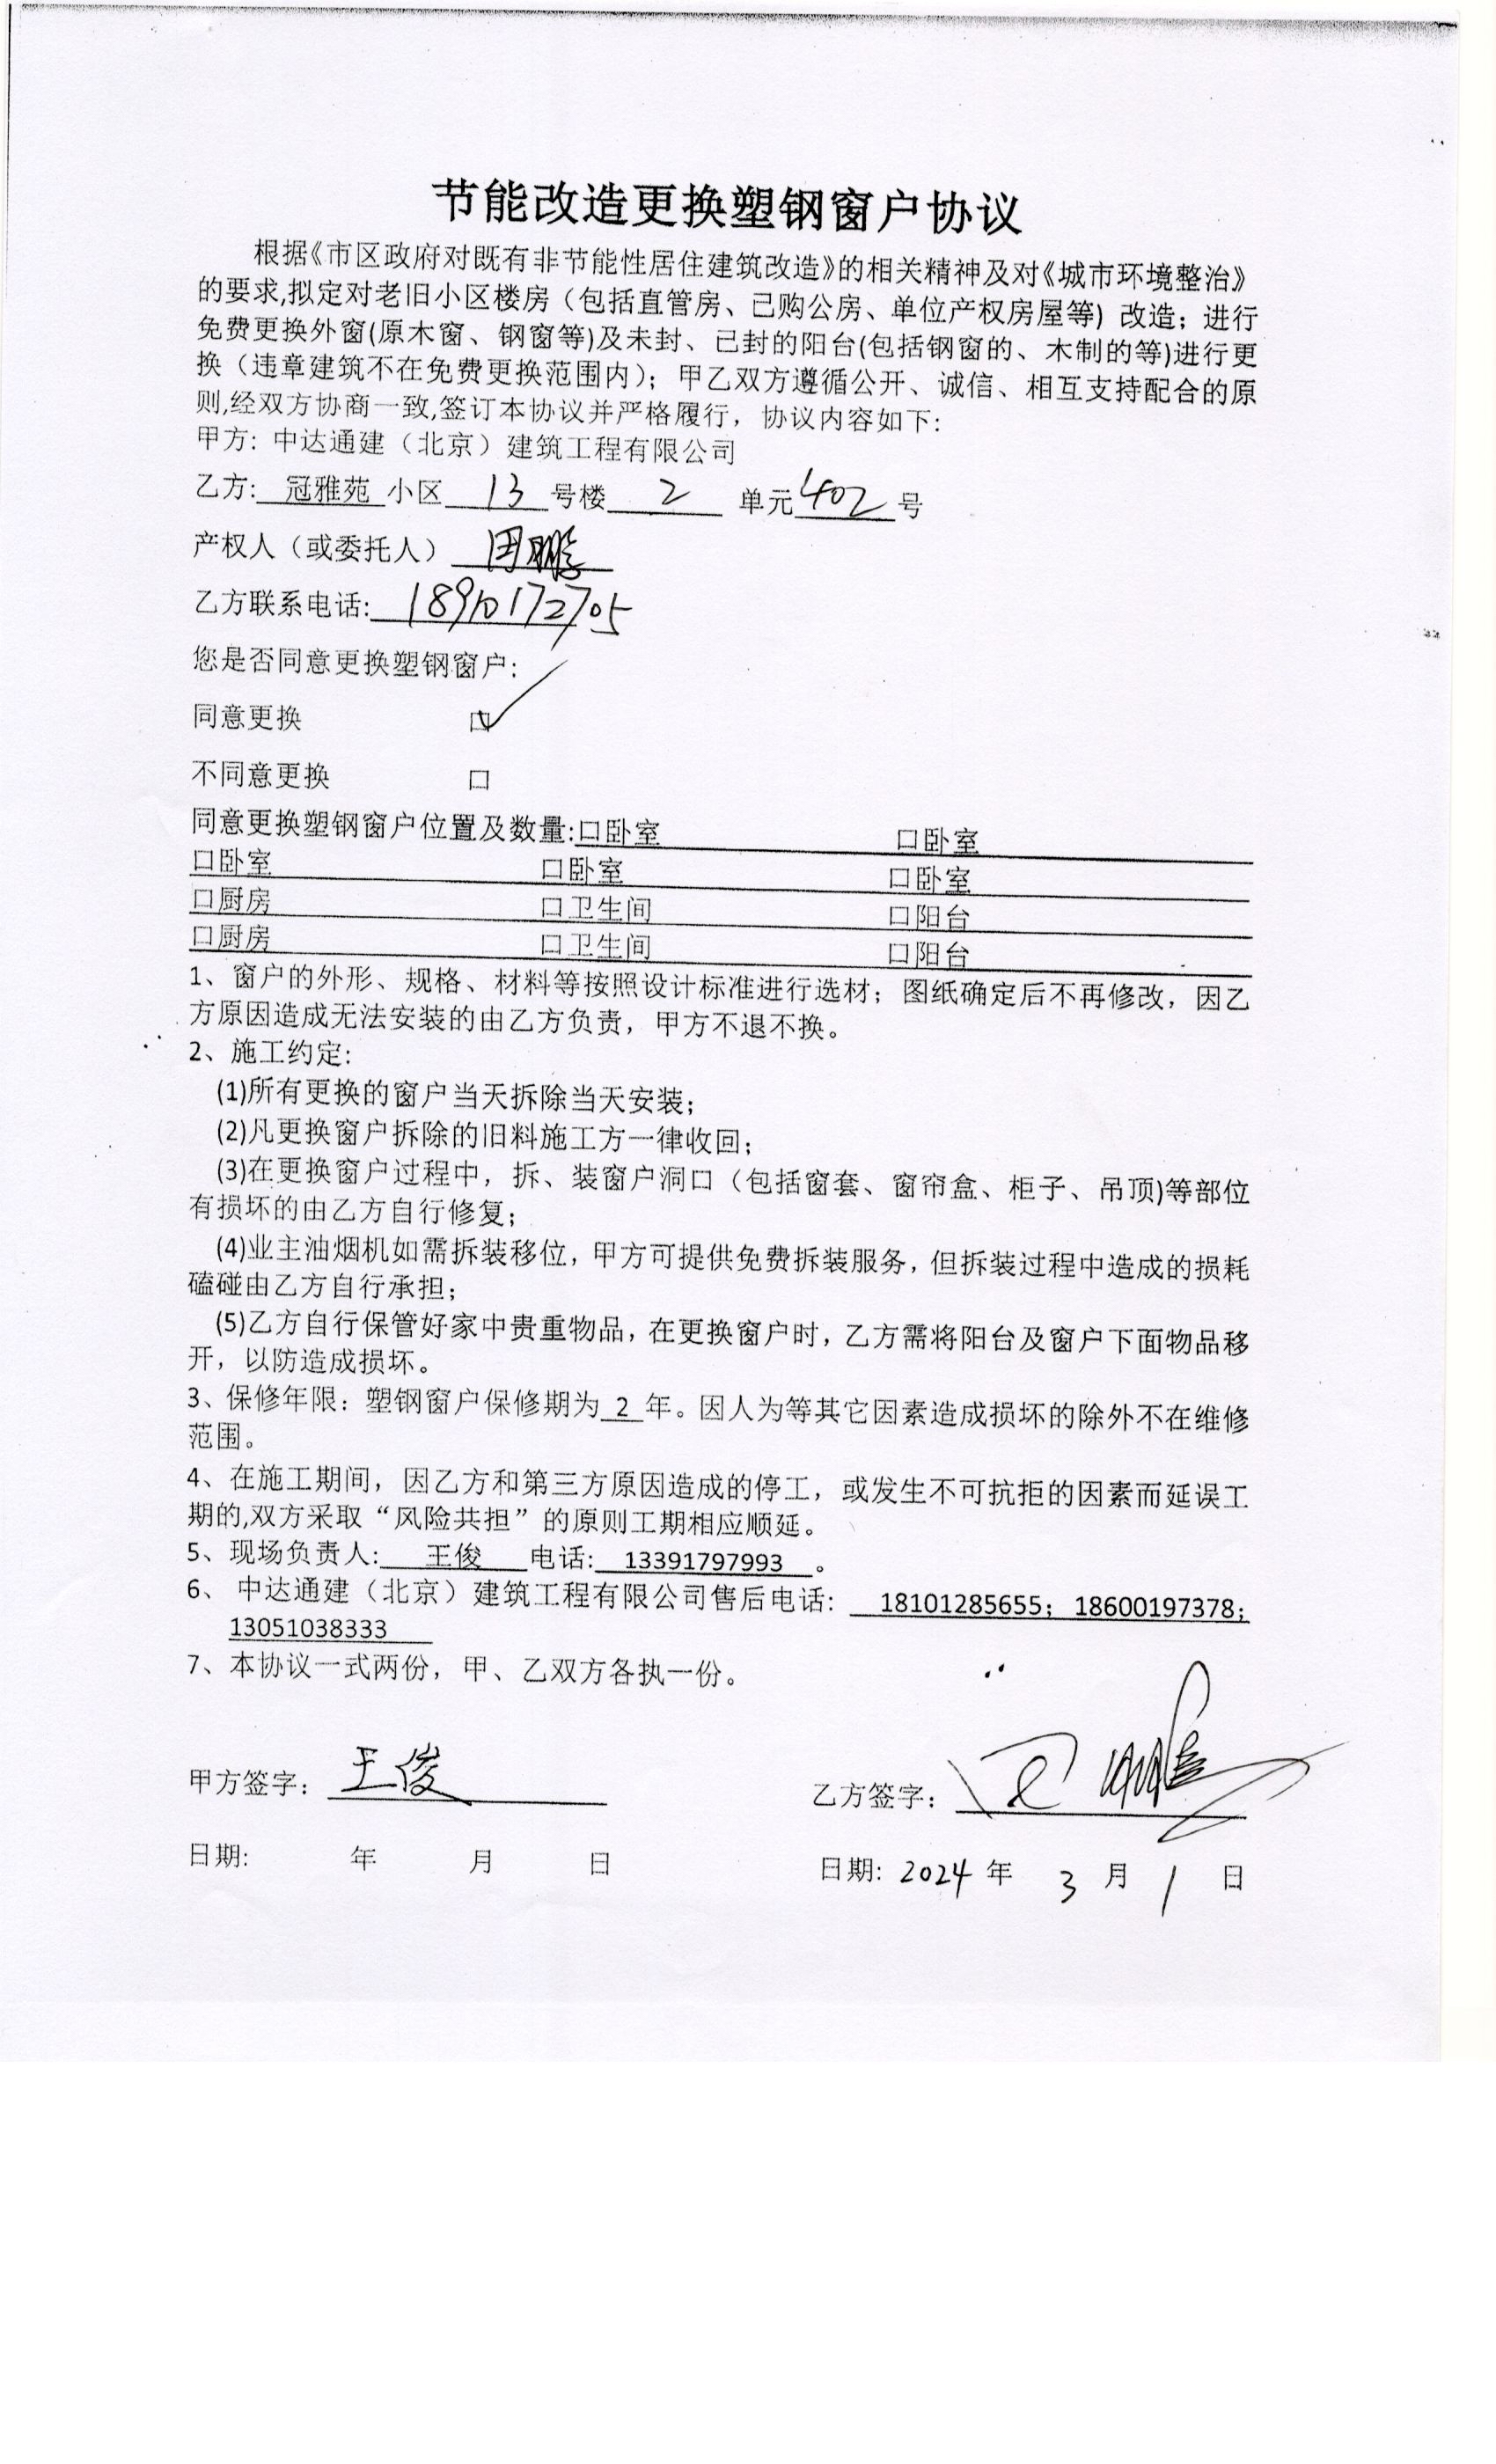 节能改造更换塑钢窗户协议
根据《市区政府对既有非节能性居住建筑改造》的相关精神及对《城市环境整治》
的要求,拟定对老旧小区楼房（包括直管房、已购公房、单位产权房屋等）改造；进行
免费更换外窗(原木窗、钢窗等)及未封、已封的阳台(包括钢窗的、木制的等)进行更
换（违章建筑不在免费更换范围内）；甲乙双方遵循公开、诚信、相互支持配合的原
则,经双方协商一致,签订本协议并严格履行，协议内容如下:
甲方: 中达通建（北京）建筑工程有限公司
乙方: 冠雅苑 小区 13 号楼 2 单元 402 号
产权人（或委托人） 田鹏
乙方联系电话: 18910172705
您是否同意更换塑钢窗户:
同意更换 口✓
不同意更换 口
同意更换塑钢窗户位置及数量:口卧室 口卧室
口卧室 口卧室 口卧室
口厨房 口卫生间 口阳台
口厨房 口卫生间 口阳台
1、窗户的外形、规格、材料等按照设计标准进行选材；图纸确定后不再修改，因乙
方原因造成无法安装的由乙方负责，甲方不退不换。
2、施工约定:
(1)所有更换的窗户当天拆除当天安装；
(2)凡更换窗户拆除的旧料施工方一律收回；
(3)在更换窗户过程中，拆、装窗户洞口（包括窗套、窗帘盒、柜子、吊顶)等部位
有损坏的由乙方自行修复；
(4)业主油烟机如需拆装移位，甲方可提供免费拆装服务，但拆装过程中造成的损耗
磕碰由乙方自行承担；
(5)乙方自行保管好家中贵重物品，在更换窗户时，乙方需将阳台及窗户下面物品移
开，以防造成损坏。
3、保修年限：塑钢窗户保修期为 2 年。因人为等其它因素造成损坏的除外不在维修
范围。
4、在施工期间，因乙方和第三方原因造成的停工，或发生不可抗拒的因素而延误工
期的,双方采取“风险共担”的原则工期相应顺延。
5、现场负责人: 王俊 电话: 13391797993 。
6、中达通建（北京）建筑工程有限公司售后电话: 18101285655；18600197378；
13051038333
7、本协议一式两份，甲、乙双方各执一份。
甲方签字: 王俊 乙方签字: 田鹏
日期: 年 月 日 日期: 2024 年 3 月 1 日